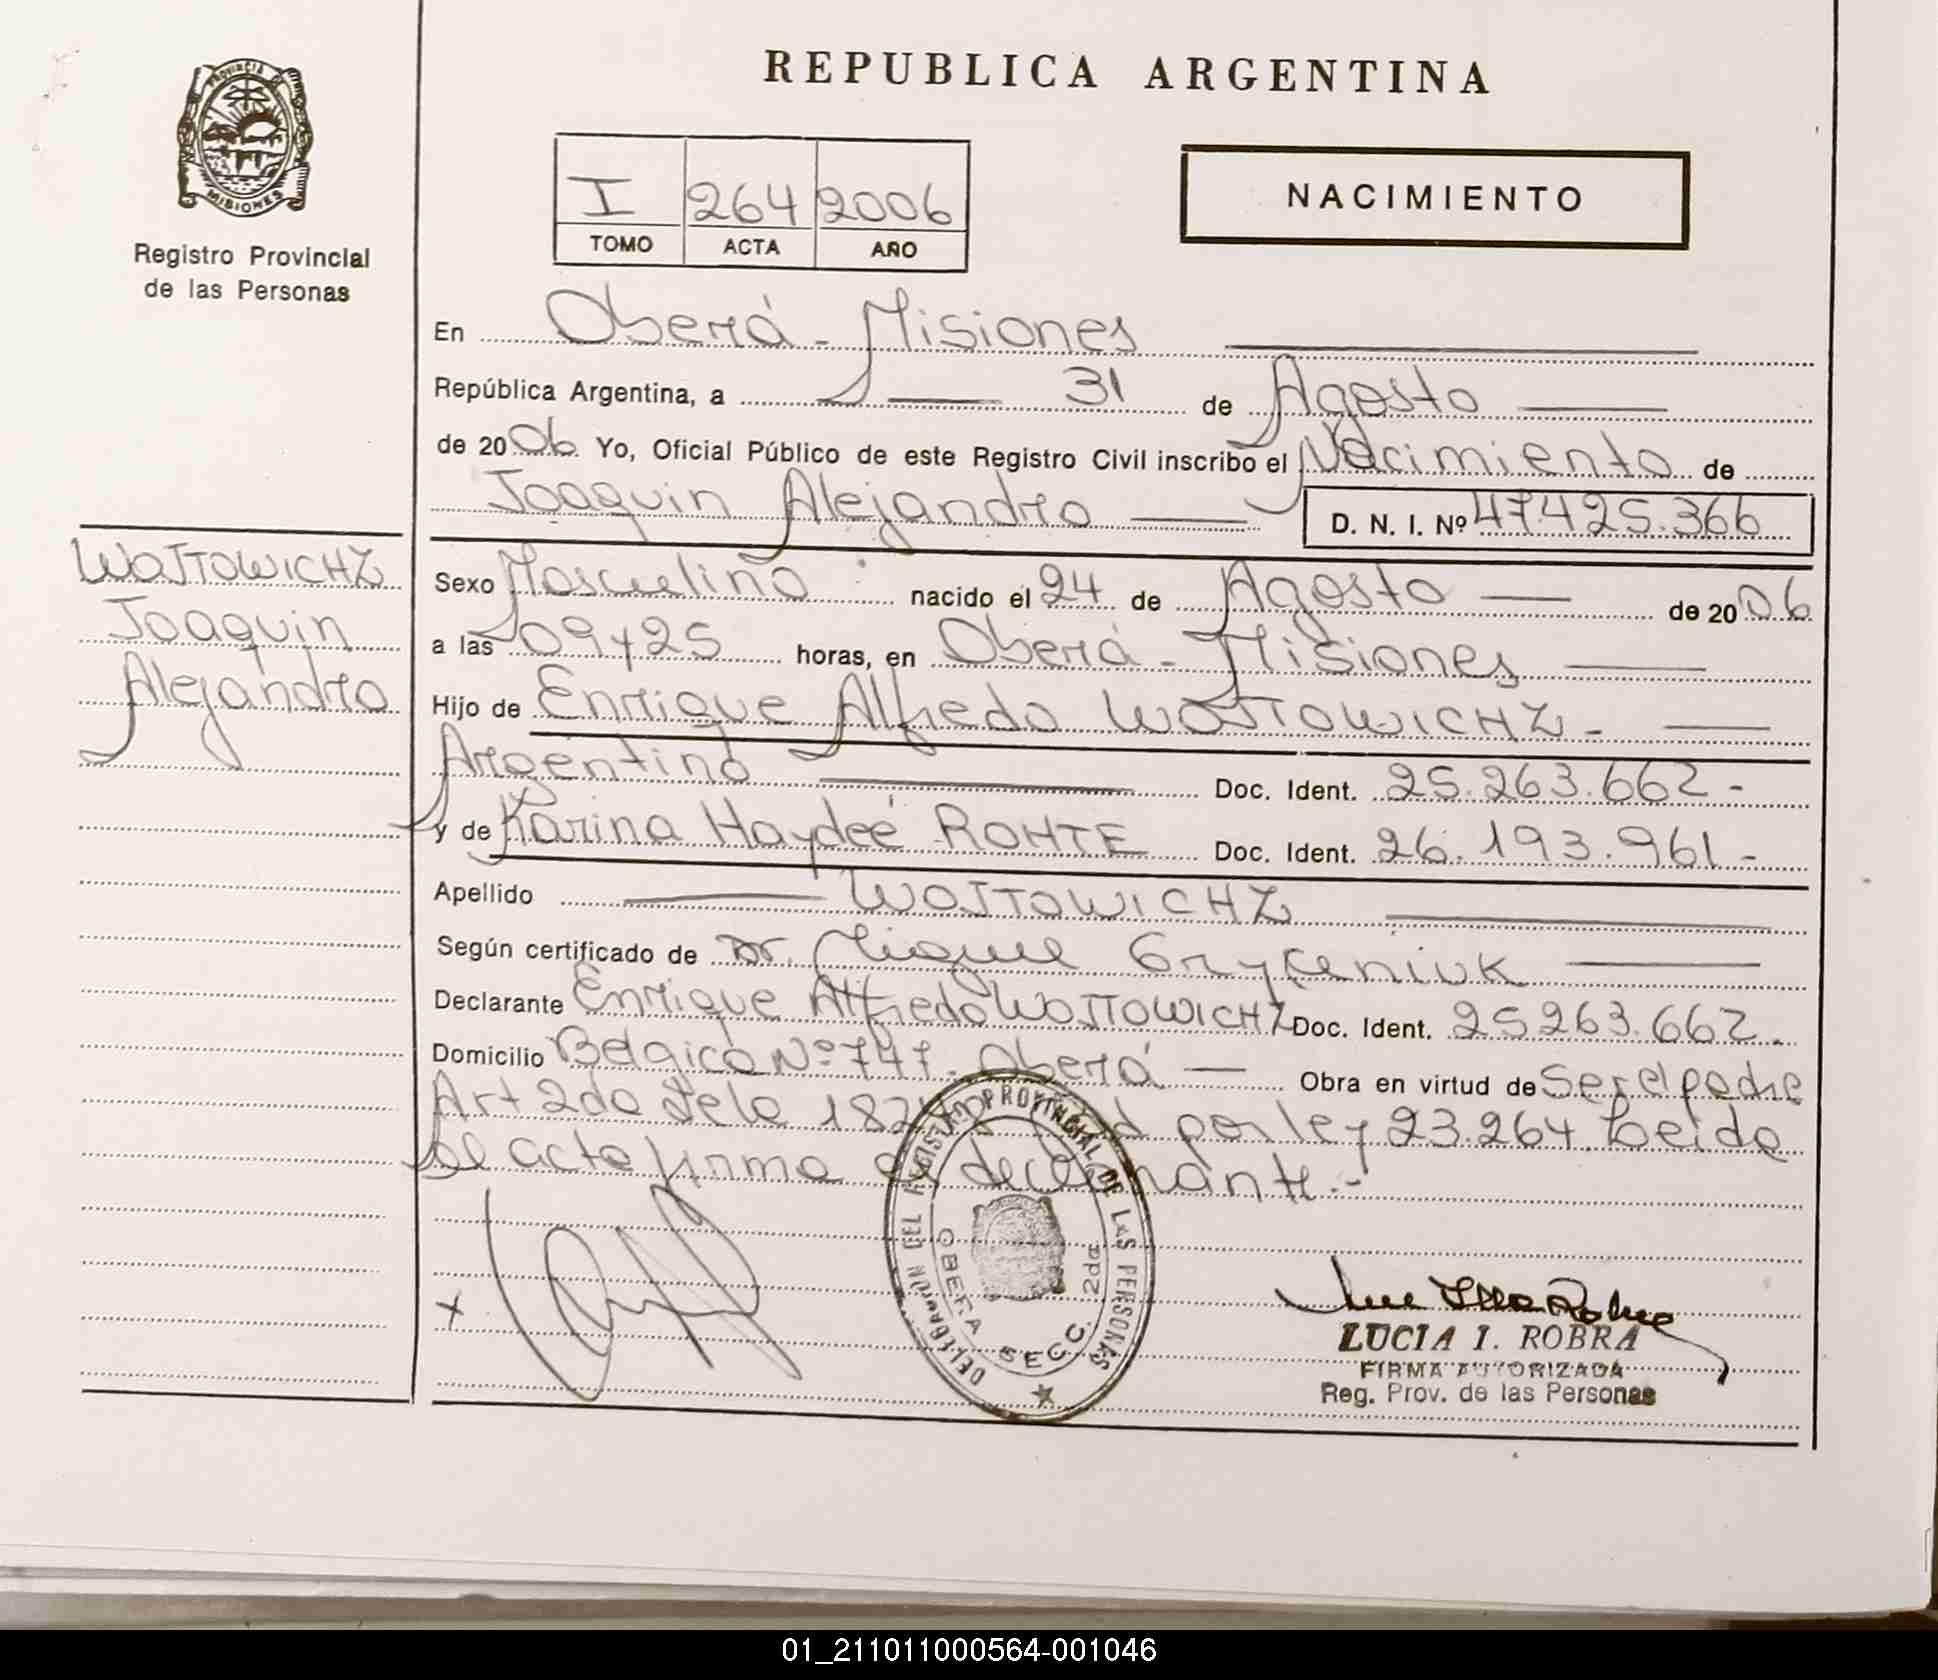 REPUBLICA ARGENTINA
PROVINCIA DE
MISIONES
Registro Provincial
de las Personas
I 264 2006
TOMO ACTA AÑO
NACIMIENTO
En Oberá - Misiones
República Argentina, a 31 de Agosto
de 2006 Yo, Oficial Público de este Registro Civil inscribo el Nacimiento de
Joaquin Alejandro D. N. I. Nº 47.425.366
WOJTOWICHZ
Joaquin
Alejandro
Sexo Masculino nacido el 24 de Agosto de 2006
a las 09 y 25 horas, en Oberá - Misiones
Hijo de Enrique Alfredo WOJTOWICHZ -
Argentino Doc. Ident. 25.263.662 -
y de Karina Haydeé ROHTE Doc. Ident. 26.193.961 -
Apellido WOJTOWICHZ
Según certificado de Dr. Miguel Gryceniuk
Declarante Enrique Alfredo WOJTOWICHZ Doc. Ident. 25263.662 -
Domicilio Belgica Nº 747 - Oberá Obra en virtud de Ser el padre
Art 2do de la 18248 por ley 23.264 Leida
el acta firma el declarante.-
DELEGACION DEL REGISTRO PROVINCIAL DE LAS PERSONAS
OBERA SECC. 2da
LUCIA I. ROBRA
FIRMA AUTORIZADA
Reg. Prov. de las Personas
01_211011000564-001046